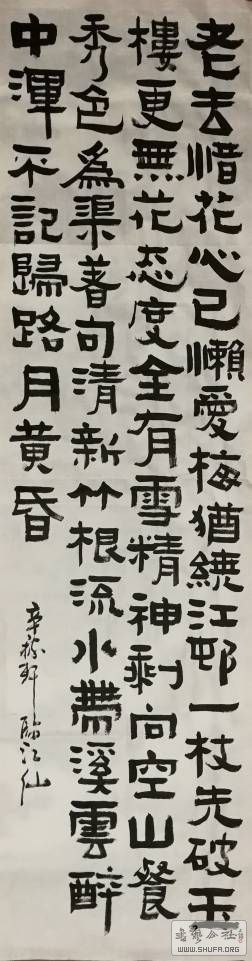 老去惜花心已懶愛梅猶繞江邨一枝先破玉
樓更無花态度全有雪精神剩向空山餐
秀色為渠著句清新竹根流水帶溪雲醉
中渾不記歸路月黄昏
辛稼軒臨江仙
書藝公社
WWW.SHUFA.ORG